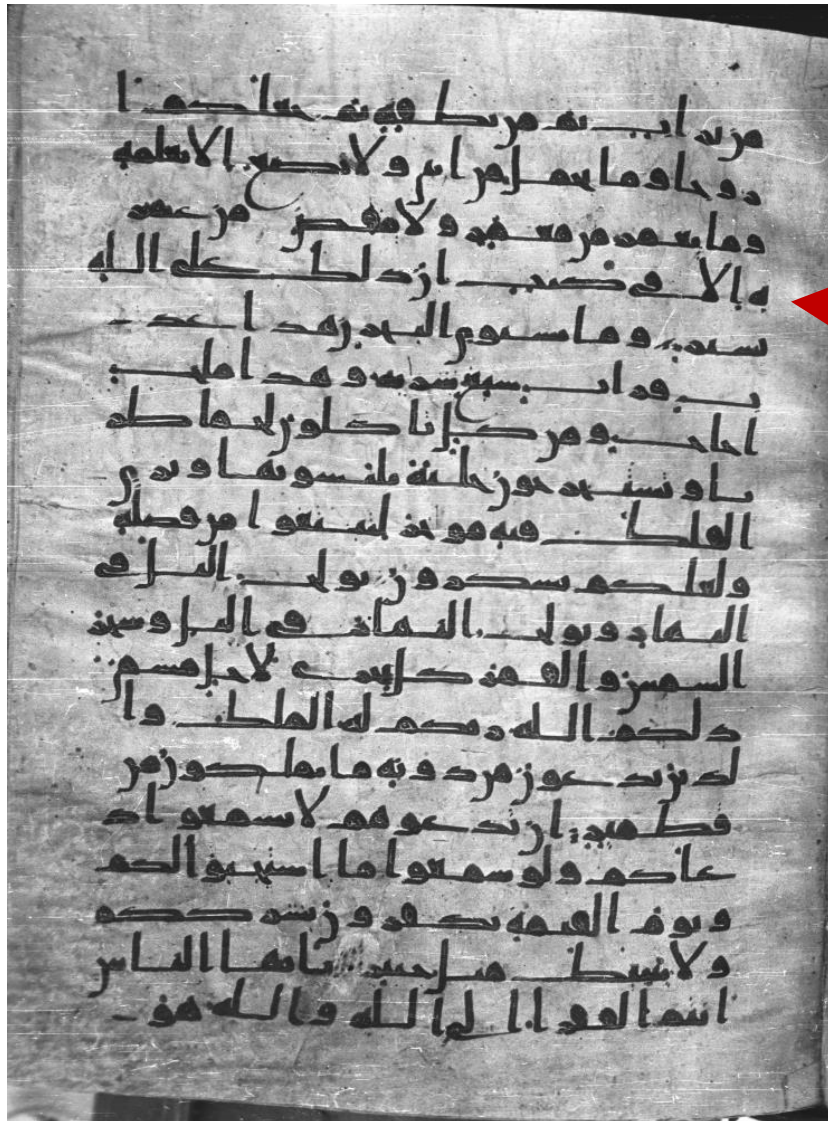 من تراب ثم من نطفة ثم جعلكم ا
زوجا وما تحمل من انثى ولا تضع الا بعلمه
وما يعمر من معمر ولا ينقص من عمر
ه الا في كتب ان ذلك على الله
يسير وما يستوي البحرن هذا عذ
ب فرات سيغ شربه وهذا ملح
اجاج ومن كل تاكلون لحما طر
يا وتستخرجون حلية تلبسونها وترى
الفلك فيه موخر لتبتغوا من فضله
ولعلكم تشكرون يولج اليل في
النهار ويولج النهار في اليل وسخر
الشمس والقمر كل يجري لاجل مسمى
ذلكم الله ربكم له الملك وا
لذين تدعون من دونه ما يملكون من
قطمير ان تدعوهم لا يسمعوا د
عاكم ولو سمعوا ما استجبوا لكم
ويوم القيمة يكفرون بشرككم
ولا ينبئك مثل خبير يايها الناس
انتم الفقرا الى الله والله هو